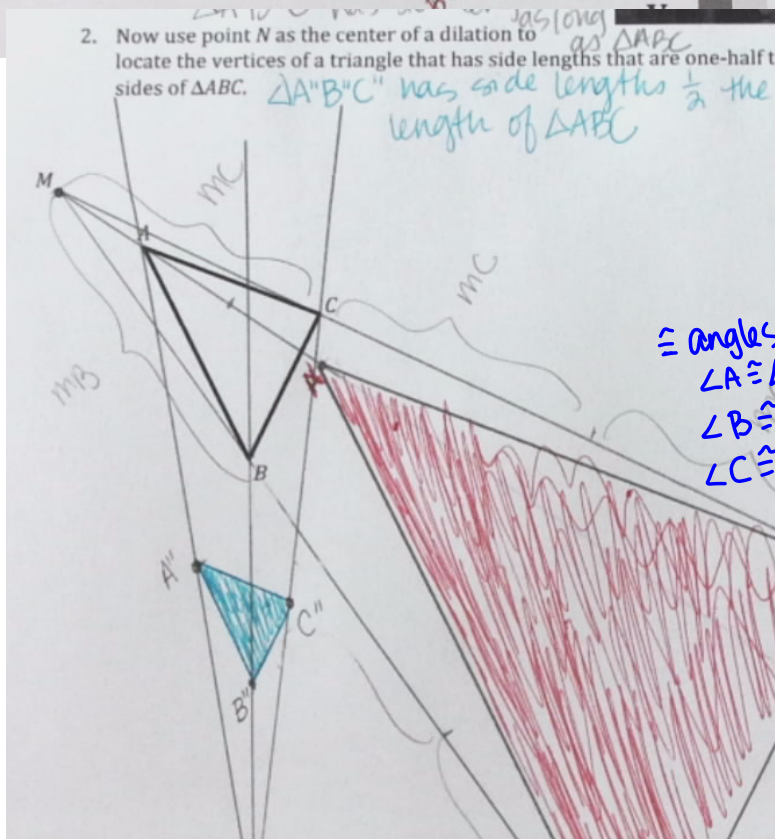 as long
as △ABC
2. Now use point N as the center of a dilation to
locate the vertices of a triangle that has side lengths that are one-half t
sides of ΔABC. △A"B"C" has side lengths 1/2 the
length of △ABC
M
mC
A
C
mC
≅ angles
∠A≅
A'
mB
∠B≅
B
∠C≅
A"
C"
B"